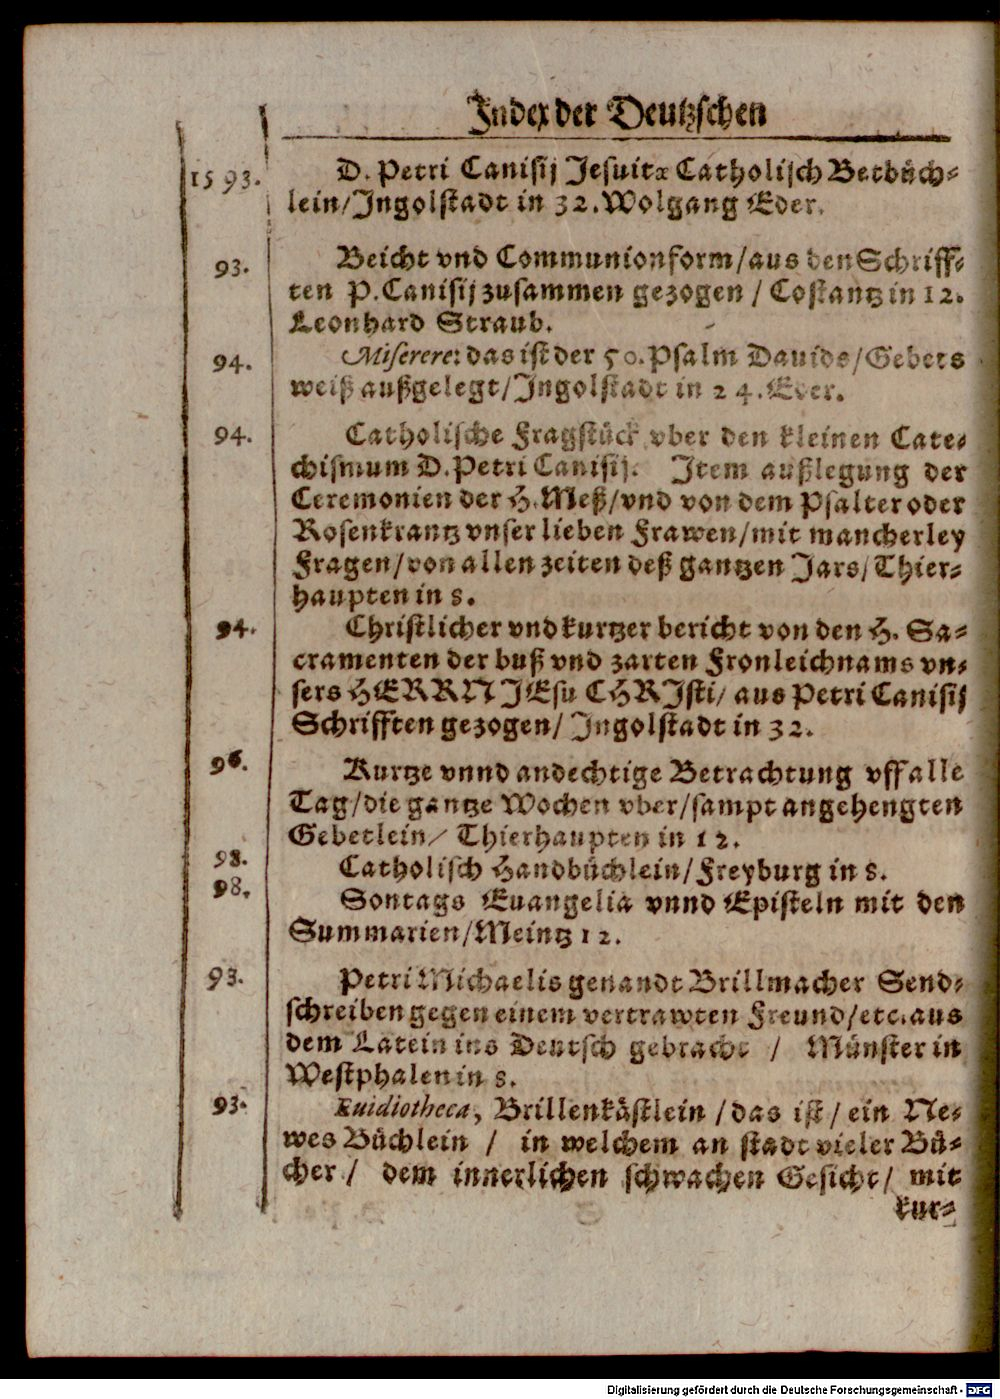 Index der Deutzschen
1593. D. Petri Canisij Jesuitæ Catholisch Betbůch-
lein/Ingolstadt in 32. Wolgang Eder.
93. Beicht vnd Communionform/aus den Schriff-
ten P. Canisij zusammen gezogen / Costantz in 12.
Leonhard Straub.
94. Miserere: das ist der 50. Psalm Dauids/Gebets
weiß außgelegt/Ingolstadt in 24. Eder.
94. Catholische Fragstück vber den kleinen Cate-
chismum D. Petri Canisij. Item außlegung der
Ceremonien der H. Meß/vnd von dem Psalter oder
Rosenkrantz vnser lieben Frawen/mit mancherley
Fragen/von allen zeiten deß gantzen Jars/Thier-
haupten in 8.
94. Christlicher vnd kurtzer bericht von den H. Sa-
cramenten der buß vnd zarten Fronleichnams vn-
sers HERRN JEsu CHRIsti/ aus Petri Canisij
Schrifften gezogen/ Ingolstadt in 32.
96. Kurtze vnnd andechtige Betrachtung vff alle
Tag/die gantze Wochen vber/sampt angehengten
Gebetlein/ Thierhaupten in 12.
98. Catholisch Handbůchlein/Freyburg in 8.
98. Sontags Euangelia vnnd Episteln mit den
Summarien/Meintz 12.
93. Petri Michaelis genandt Brillmacher Send-
schreiben gegen einem vertrawten Freund/etc. aus
dem Latein ins Deutsch gebracht / Münster in
Westphalen in 8.
93. Euidiotheca, Brillenkåstlein /das ist/ ein Ne-
wes Bůchlein / in welchem an stadt vieler Bů-
cher/ dem innerlichen schwachen Gesicht/ mit
kur-
Digitalisierung gefördert durch die Deutsche Forschungsgemeinschaft - DFG